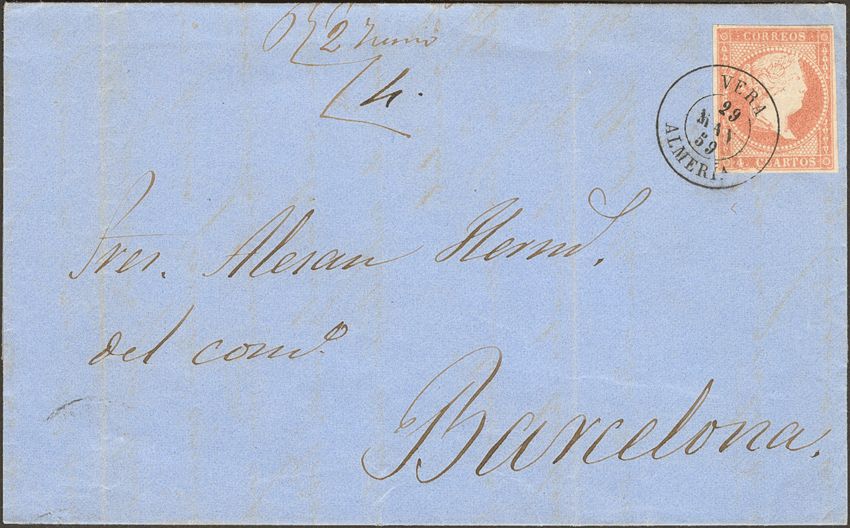 R 2 Junio
4.
CORREOS
VERA
29
MAY
59
ALMERIA
4. CUARTOS
Sres. Alesan Herm.
del com.º
Barcelona.